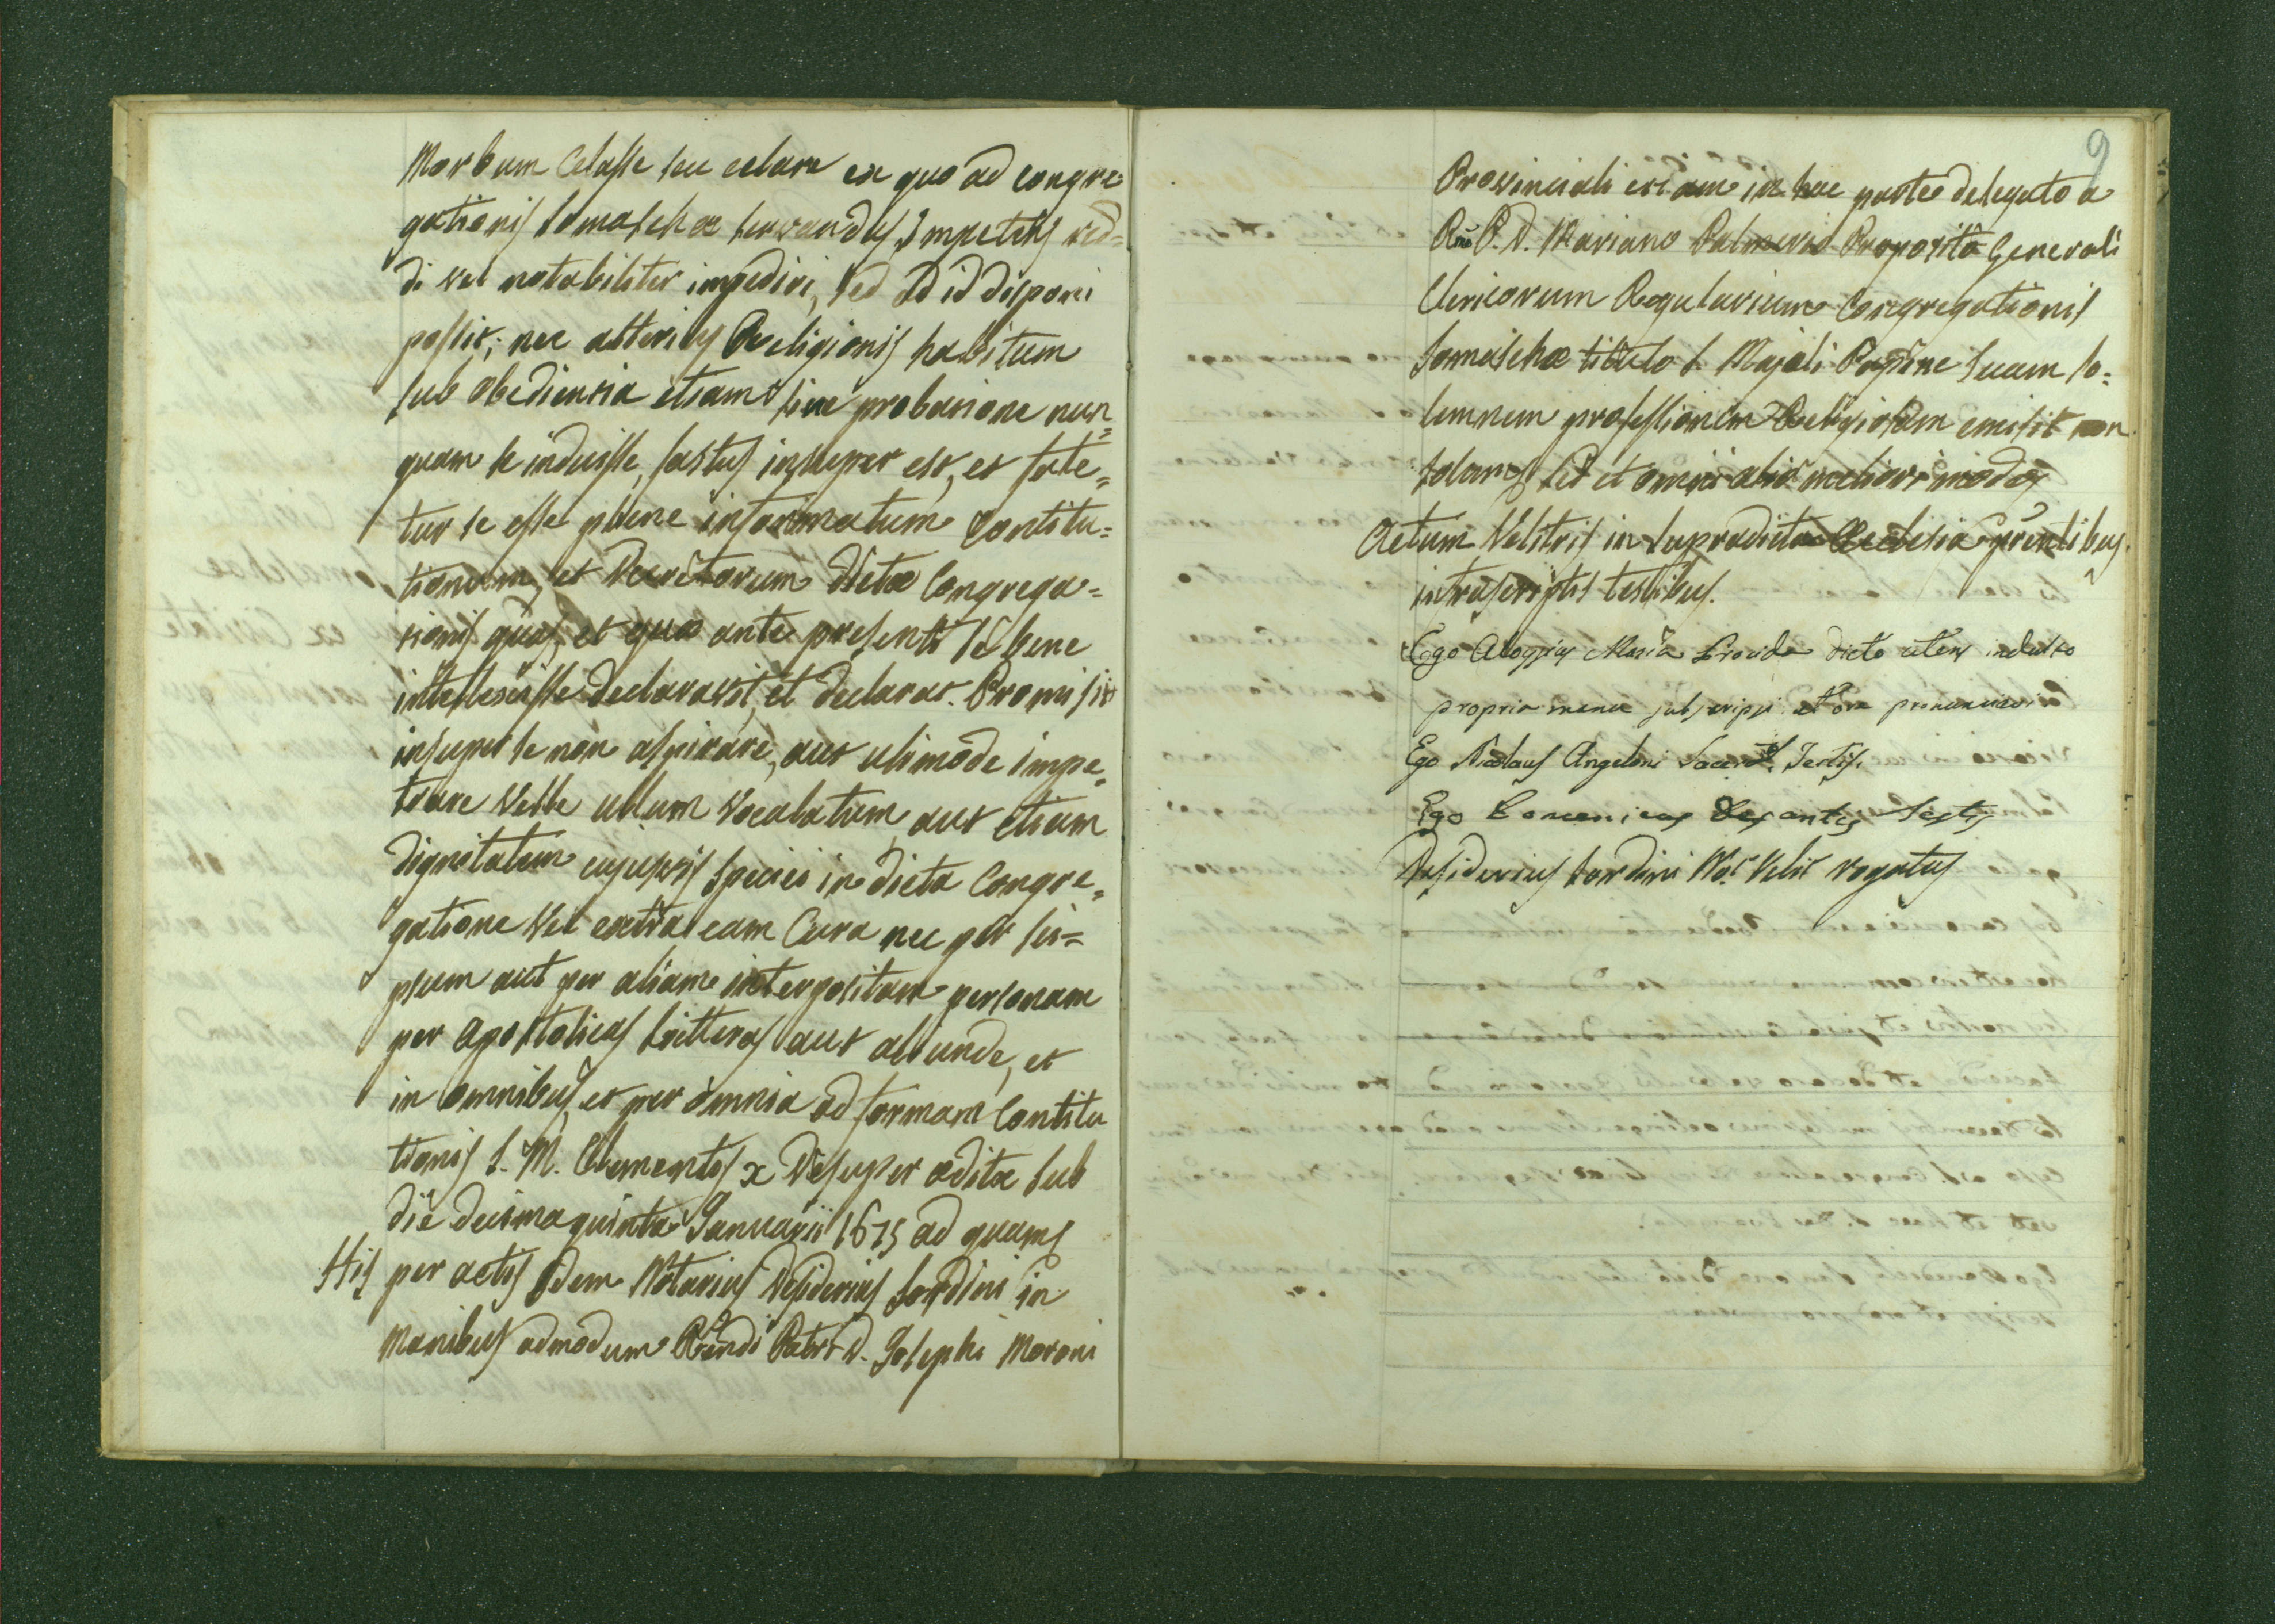 Morbum Celasse seu celare ex quo ad congre=
gationis Somaschæ servandas Impotens red=
di vel notabiliter impediri, sed ad id disponi
possit; nec alterius Religionis habitum
sub obedientia etiam sine probatione nun=
quam se induisse, fassus insuper est, et fate=
tur se esse plene informatum Contitu=
tionum, et Decretorum Dictæ Congrega=
tionis quas, et quæ ante presenti se bene
intellexisse declaravit, et declarat. Promisit
insuper se non aspirare, aut ulimode impe=
trare Velle ullum Vocalatum aut etiam
dignitatem cujusvis speciei in dicta Congre=
gatione Vel extra eam Cura nec per sei=
psum aut per aliam interpositam personam
per Apostolicas Litteras aut aliunde, et
in omnibus, et per omnia ad formam Contitu
tionis S. M. Clementis x Desuper æditæ sub
die decima quinta Januarii 1675 ad quams
His per actis Idem Notarius Desiderius Sordini in
Manibus admodum Rendi Patris D. Josephi Moroni
9
Provinciali etiam in hac parte delegato a
Rmo P. D. Mariano Palmerio Preposito Generali
Clericorum Regularium Congregationis
Somaschæ titulo S. Majoli Papiæ suam so=
lemnem professionem Religiosam emisit non
solum sed et omni alio meliori modo
Actum Velitris in supradicta Ecclesia presntibus
infrascriptis testibus.
Ego Aloysius Maria Provida dicto utens indulto
propria manu subscripsi et ore pronunciavi
Ego Nicolaus Angeloni Sacerd. Testis.
Ego Domenicus Desantis testis
Desiderius Sordini Not. Velit rogatus